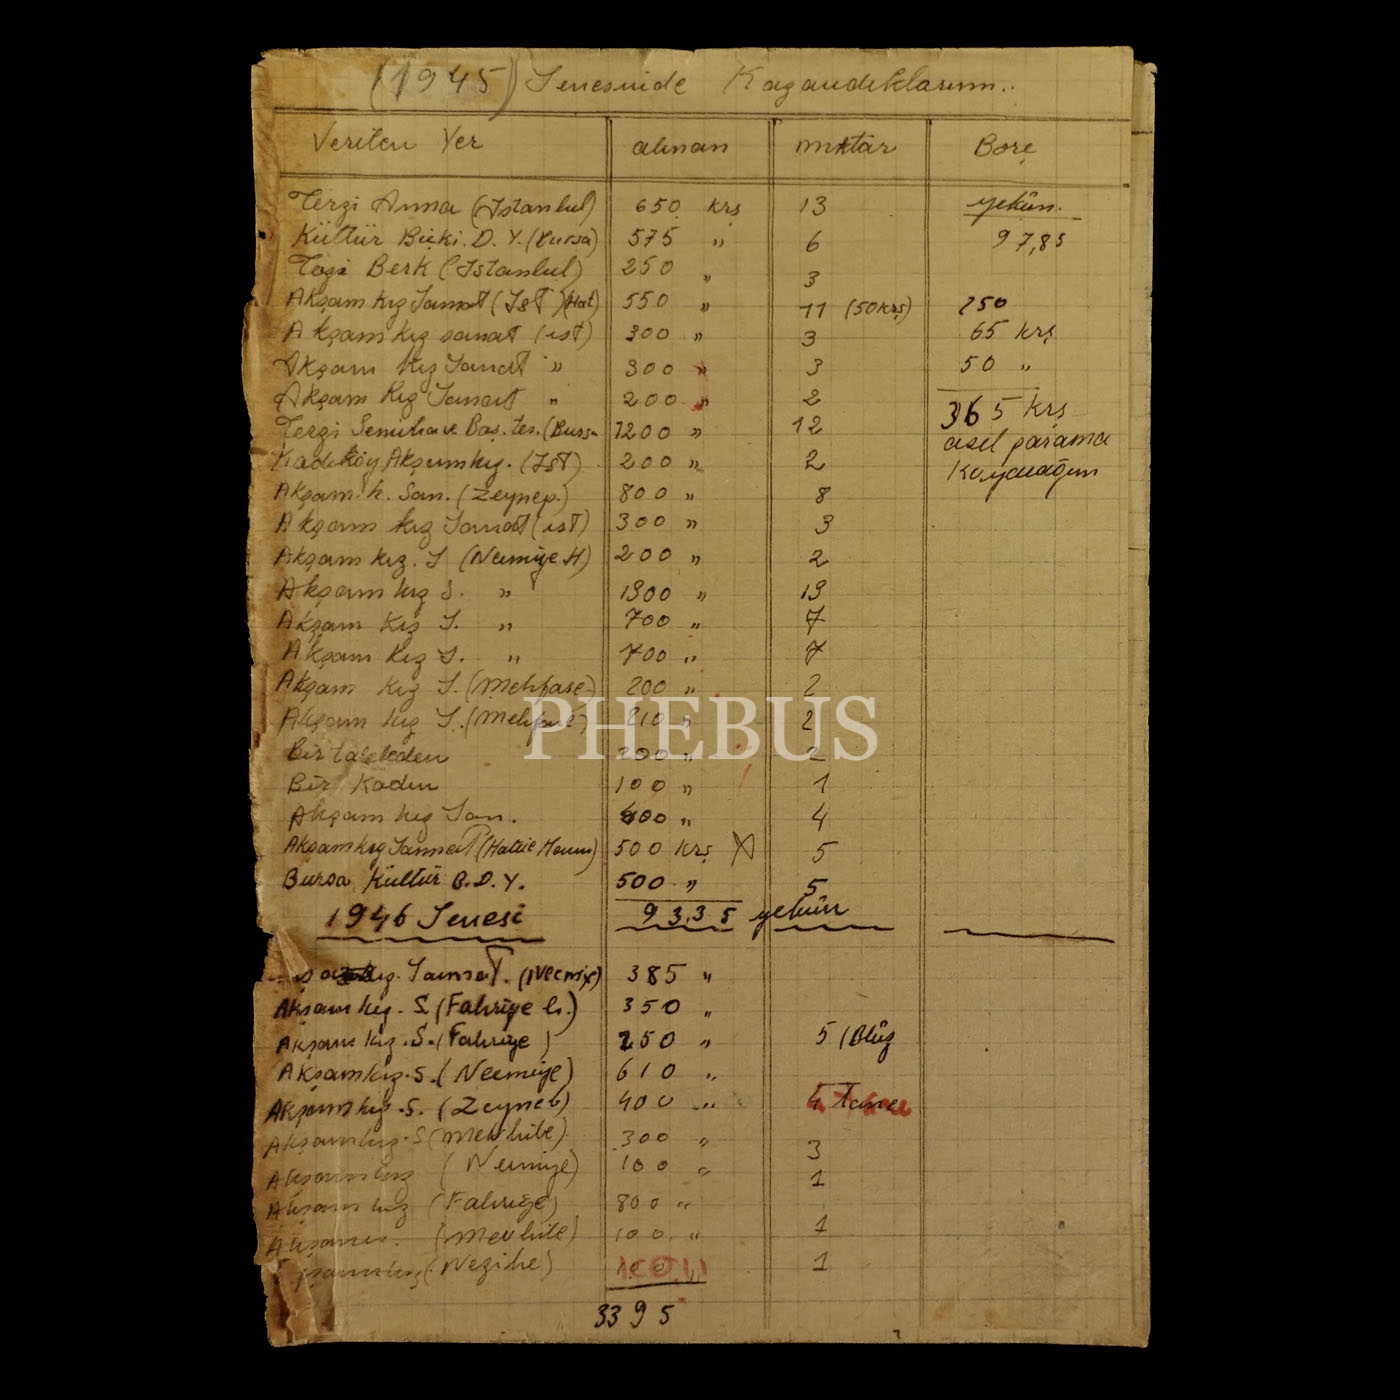 (1945) Senesinde Kazandıklarım..
Verilen Yer alınan miktar Borç
Terzi Anna (İstanbul) 650 krş 13 yekûn.
Kültür Biçki. D. Y. (Bursa) 575 " 6 97,85
Berk (İstanbul) 250 " 3
Akşam kız Sanat (İst) (Hat) 550 " 11 (50 krş) 250
Akşam kız sanat (ist) 300 " 3 65 krş
Akşam kız Sanat " 300 " 3 50 "
Akşam kız Sanat " 200 " 2 365 krş
Terzi Seniha ve Baş. ter. (Burs 1200 " 12 asıl parama
Kadıköy Akşam kız. (İst) 200 " 2 Koyacağım
Akşam. k. San. (Zeynep.) 800 " 8
Akşam kız Sanat (ist) 300 " 3
Akşam kız. S (Neimiye H) 200 " 2
Akşam kız S. " 1300 " 13
Akşam Kız S. " 700 " 7
Akşam kız S. " 700 " 7
Akşam kız S. (Mehpare) 200 " 2
Akşam kız S. (Mehpare) 210 " 2
PHEBUS
Bir talebeden 200 " 2
Bir Kadın 100 " 1
Akşam kız San. 400 " 4
Akşam kız Sanat (Hatice Hanım) 500 Krş X 5
Bursa Kültür B.D.Y. 500 " 5
1946 Senesi 93,35 yekûn
kız. Sanat. (Neimiye) 385 "
Akşam kız. S. (Fahriye h.) 350 "
Akşam kız. S. (Fahriye) 250 " 5 (Blûz
Akşam kız. S. (Neimiye) 610 "
Akşam kız. S. (Zeyneb) 400 " 4 tane
Akşam kız. S (Mevhibe) 300 " 3
Akşam kız (Neimiye) 100 " 1
Akşam kız (Fahriye) 800 "
Akşam (Mevhibe) 100 " 1
(Nezihe) 100 " 1
3395